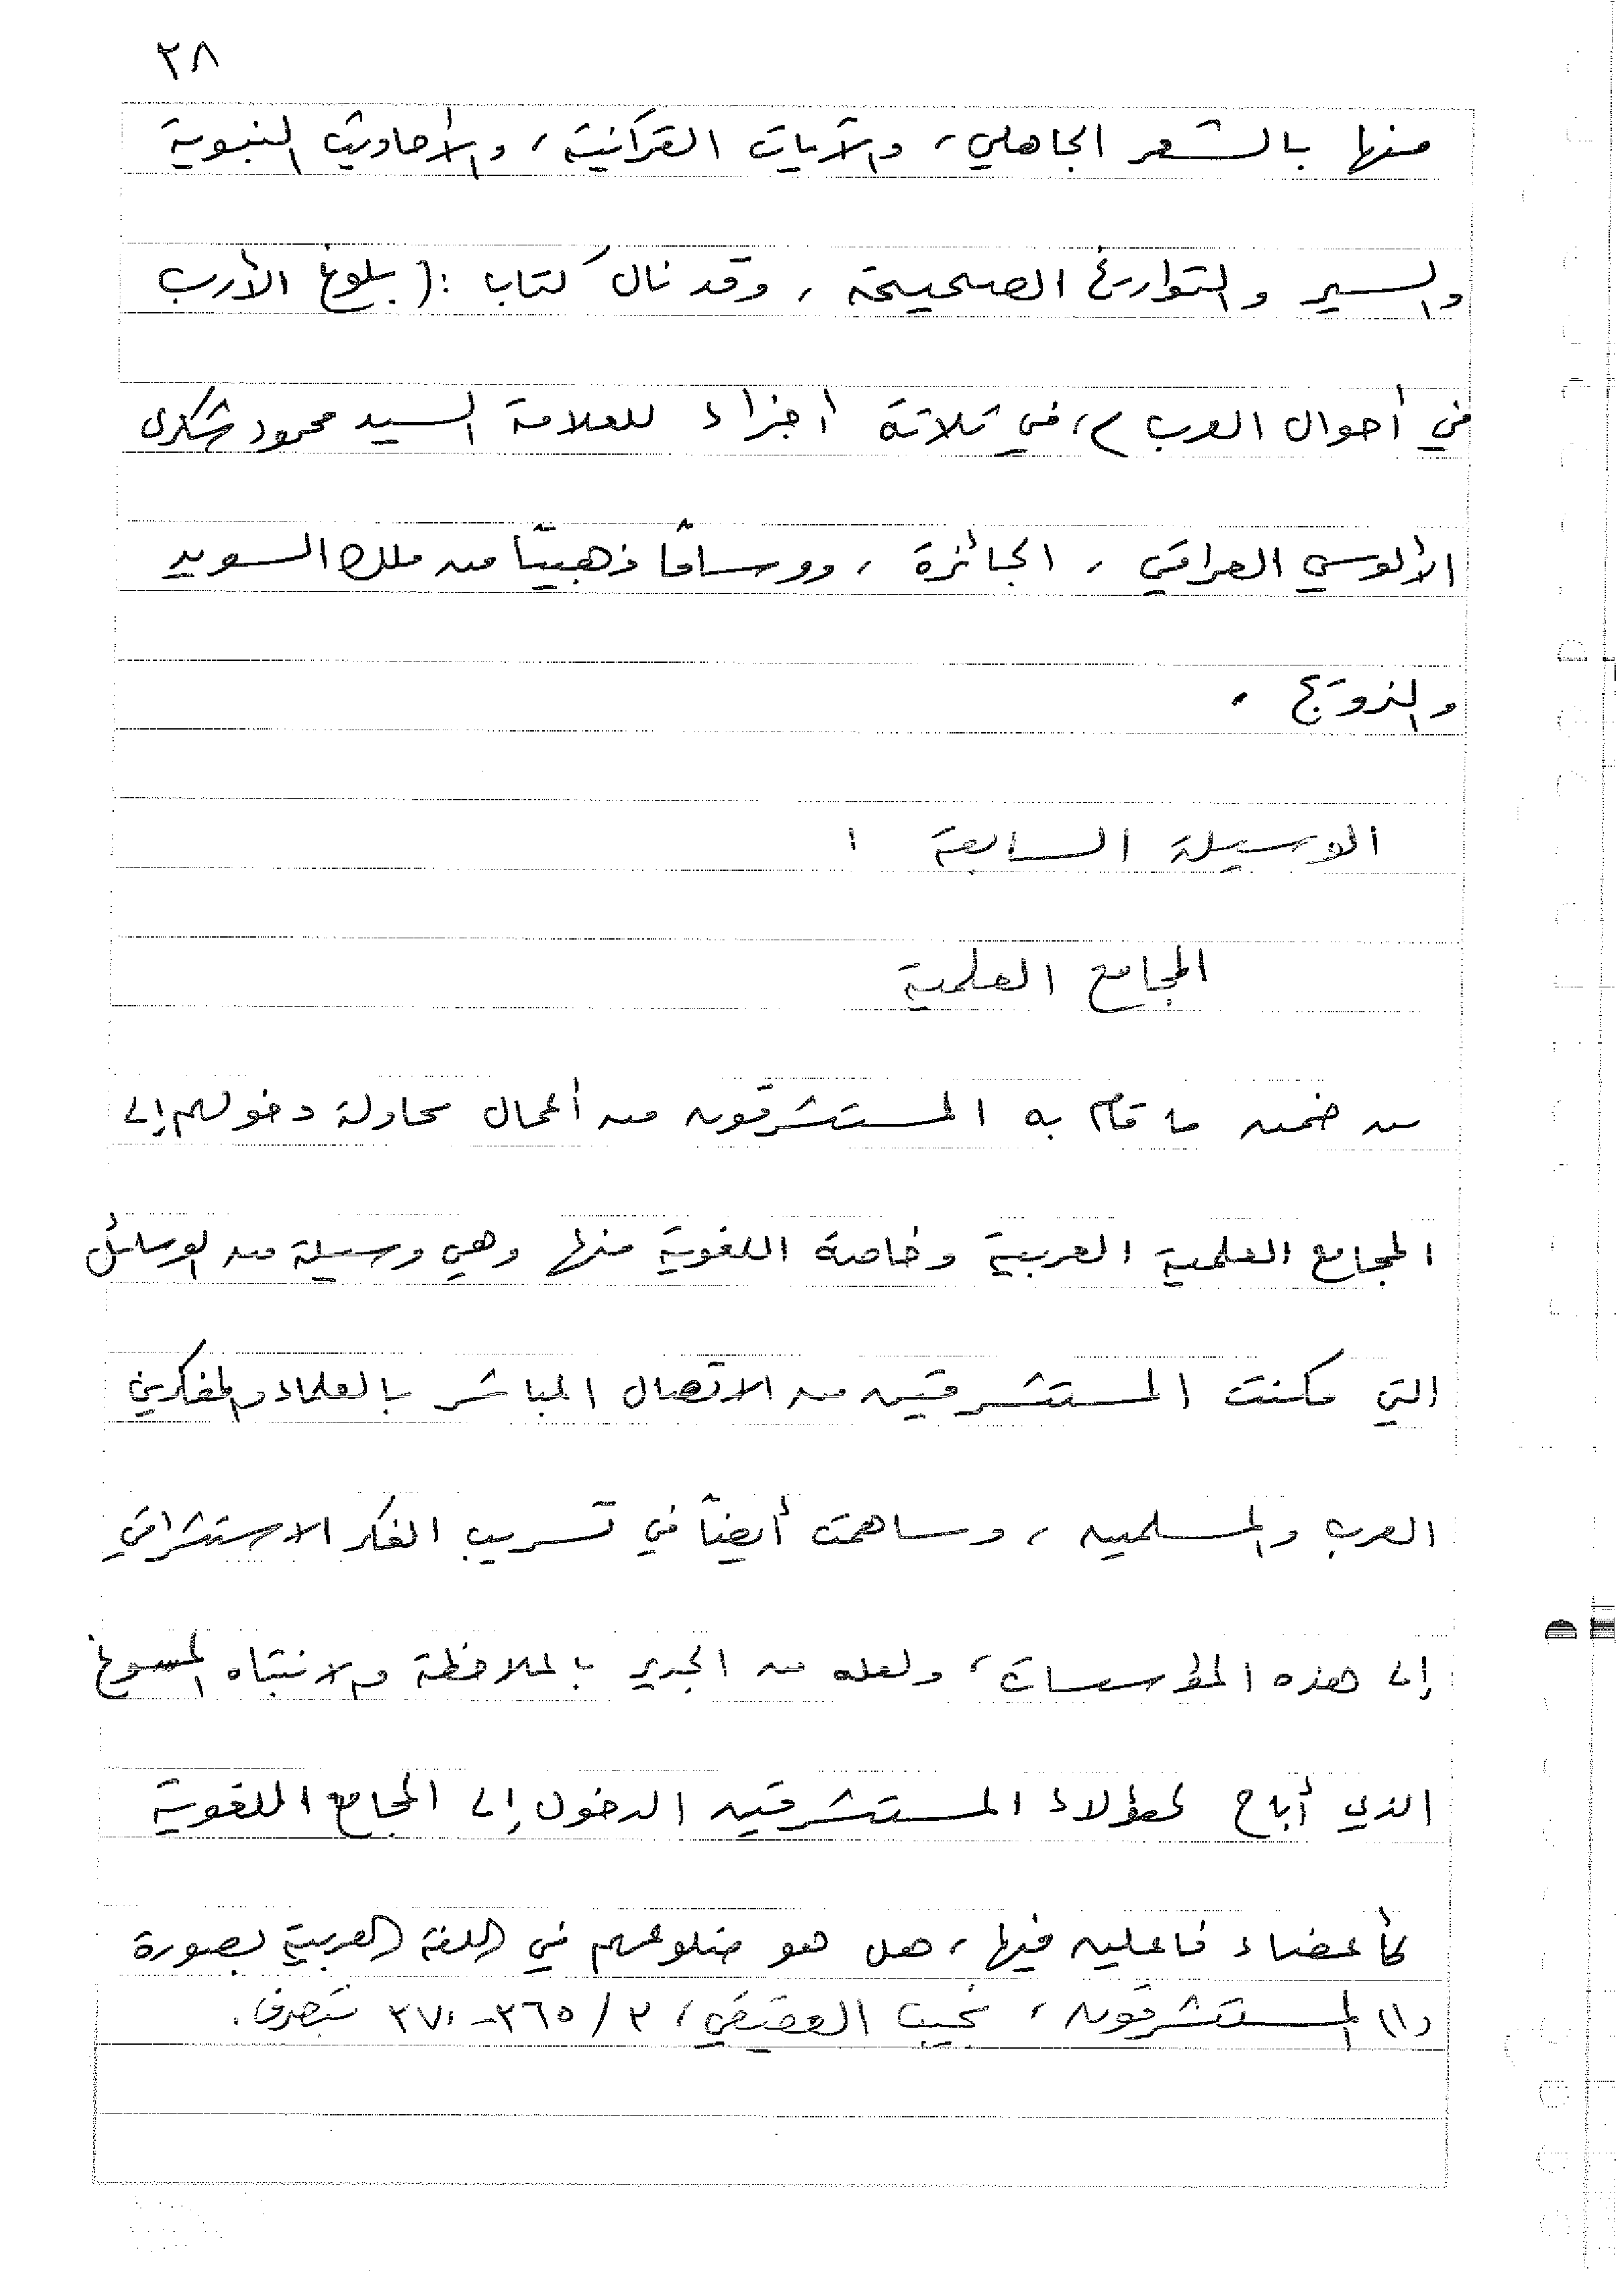 ٢٨
منها بالشعر الجاهلي، والآيات القرآنية، والأحاديث النبوية
والسير والتواريخ الصحيحة، وقد نال كتاب :( بلوغ الأرب
في أحوال العرب )، في ثلاثة أجزاء للعلامة السيد محمود شكرى
الألوسي العراقي، الجائزة، ووسامًا ذهبيًا من ملك السويد
والنرويج .
الوسيلة السابعة :
المجامع العلمية
من ضمن ما قام به المستشرقون من أعمال محاولة دخولهم إلى
المجامع العلمية العربية وخاصة اللغوية منها وهي وسيلة من الوسائل
التي مكنت المستشرقين من الاتصال المباشر بالعلماء والمفكرين
العرب والمسلمين، وساهمت أيضًا في تسريب الفكر الاستشراقي
إلى هذه المؤسسات، ولعله من الجدير بالملاحظة والانتباه المسوغ
الذي أباح لهؤلاء المستشرقين الدخول إلى المجامع اللغوية
كأعضاء فاعلين فيها، هل هو ضلوعهم في اللغة العربية بصورة
(١) المستشرقون، نجيب العقيقي، ٣/ ٣٦٥-٣٧٠ بتصرف.